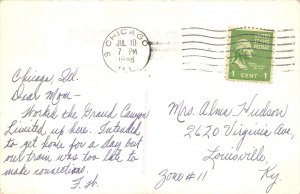 CHICAGO
9
JUL 10
7 PM
1946
ILL.
1 CENT 1
Chicago, Ill.
Dear Mom—
Worked the Grand Canyon
Limited up here. Intended
to get home for a day but
our train was too late to
make connections.
Mrs. Alma Hudson
2620 Virginia Ave,
Louisville,
Zone #11 Ky.